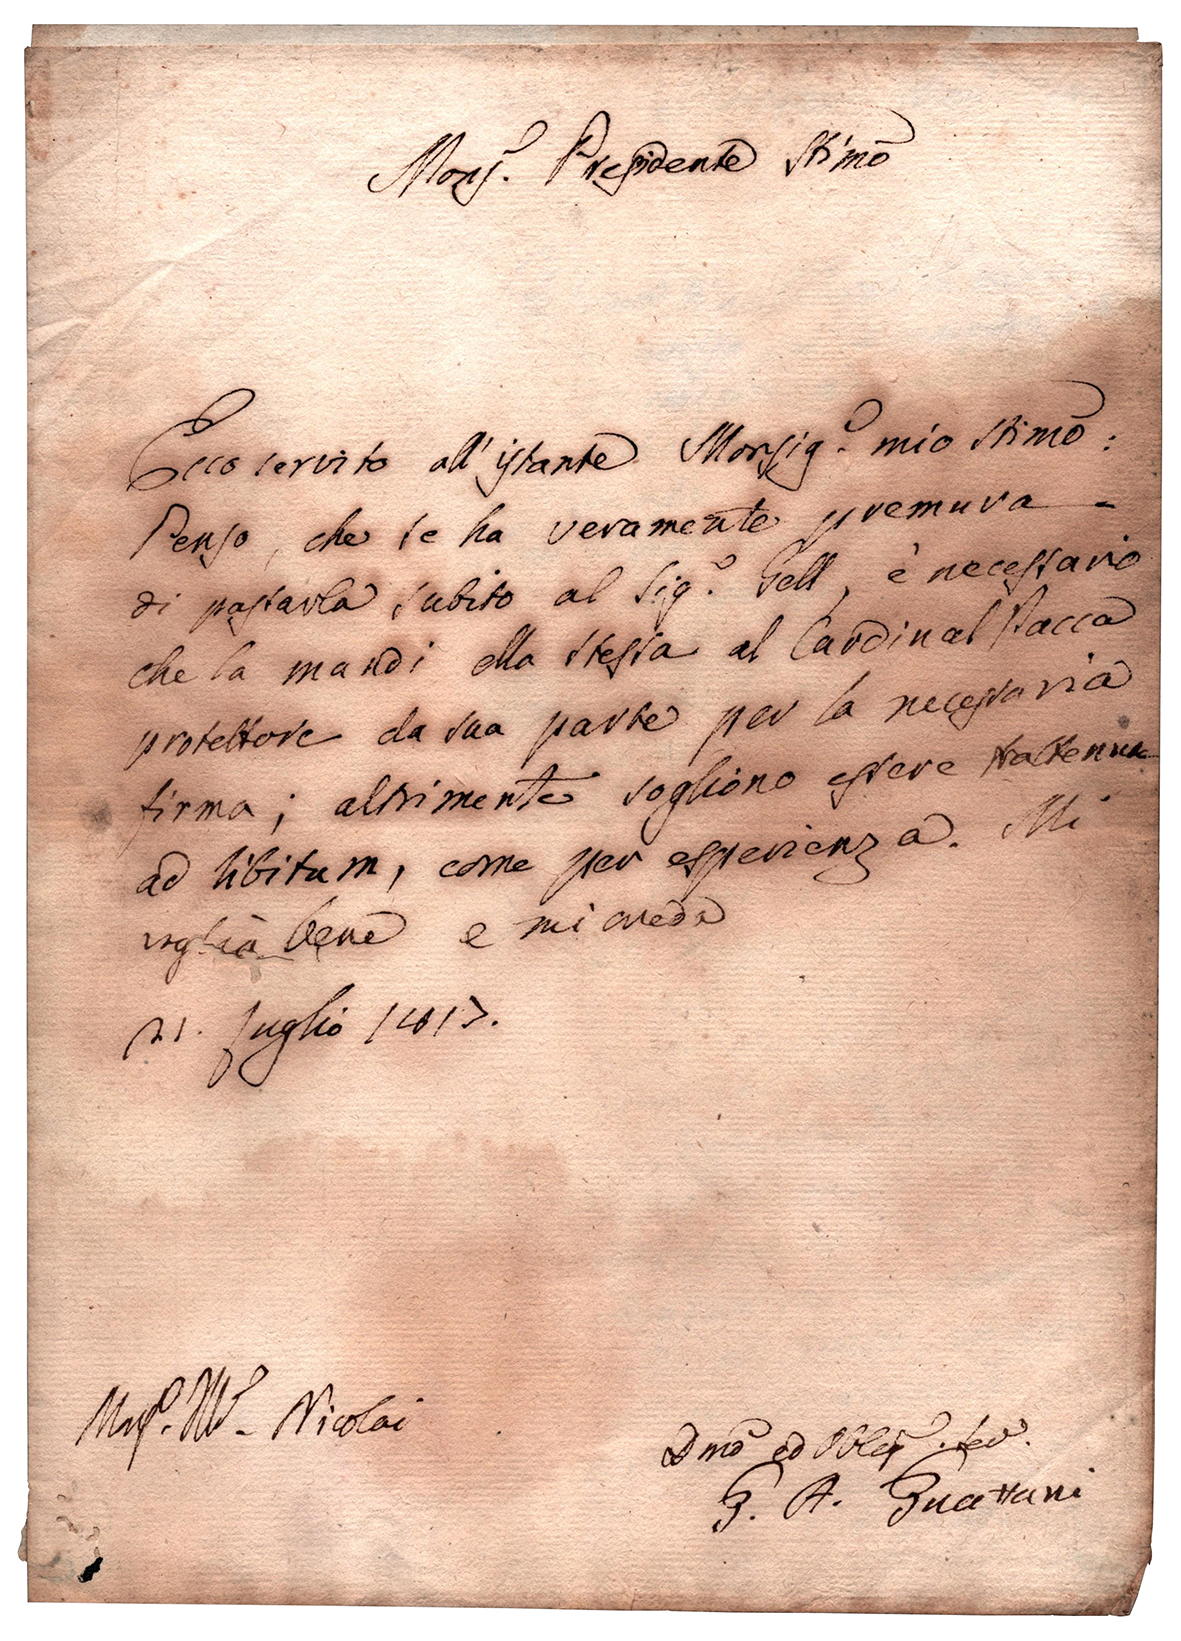 Monsʳ. Presidente Stimō
Ecco servito all'istante Monsigʳ. mio Stimō:
Penso, che se ha veramente premura -
di passarla subito al Sigʳ. Gell, è necessario
che la mandi ella stessa al Cardinal Pacca
protettore da sua parte per la necessaria
firma; altrimente sogliono essere trattenute
ad libitum, come per esperienza. Mi
voglia bene e mi creda
21. Luglio 1817.
Nicolai
Dmō ed Obbl. Ser.
G. A. Guattani